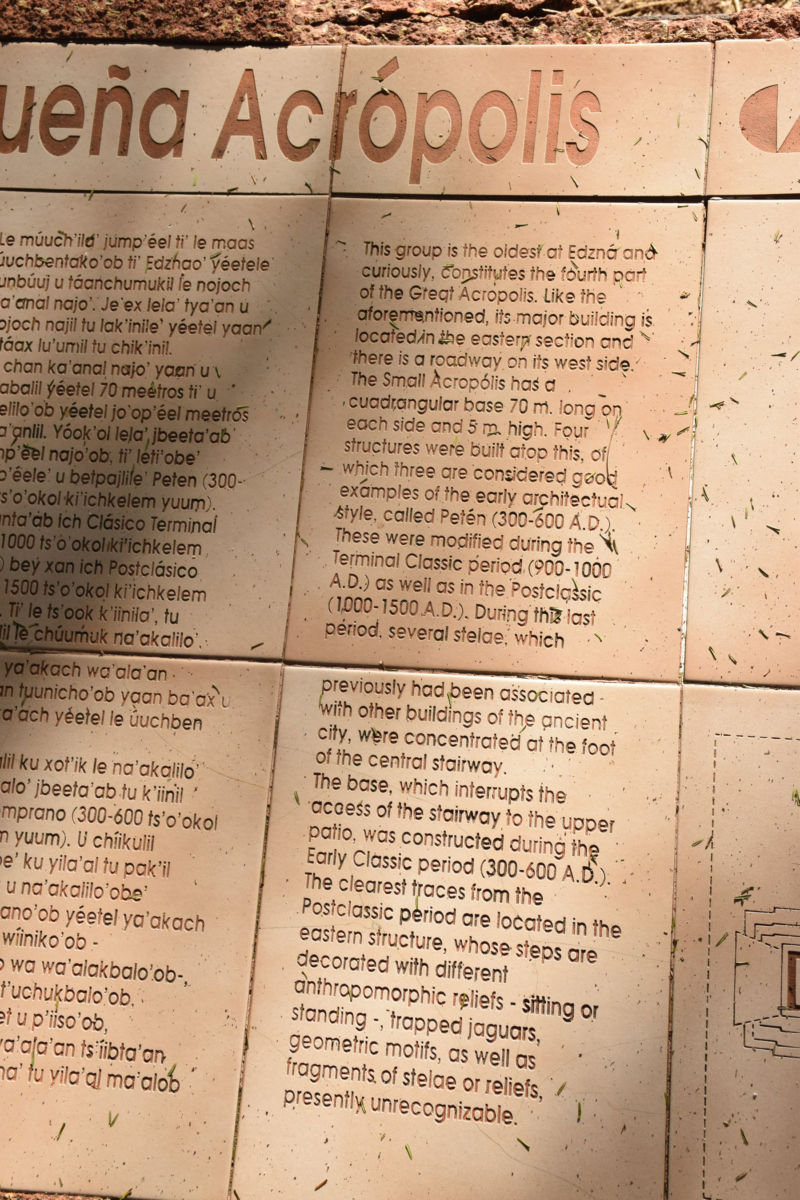 ueña Acrópolis
Le múuch'ila' jump'éel ti' le maas
úuchbentako'ob ti' Edznao' yéetele
unbúuj u táanchumukil le nojoch
a'anal najo'. Je'ex lela' tya'an u
ojoch najil tu lak'inile' yéetel yaan
táax lu'umil tu chik'inil.
chan ka'anal najo' yaan u
abalil yéetel 70 meétros ti' u
elilo'ob yéetel jo'op'éel meetrós
a'anlil. Yóok'ol lela' jbeeta'ab
np'éel najo'ob, ti' leti'obe'
o'éele' u betpajlile' Peten (300-
ts'o'okol ki'ichkelem yuum).
nta'ab ich Clásico Terminal
1000 ts'o'okol ki'ichkelem
) bey xan ich Postclásico
1500 ts'o'okol ki'ichkelem
. Ti' le ts'ook k'iinila', tu
lil le chúumuk na'akalilo'
ya'akach wa'ala'an
an tuunicho'ob yaan ba'ax u
a'ach yéetel le úuchben
lil ku xot'ik le na'akalilo'
alo' jbeeta'ab tu k'iinil
mprano (300-600 ts'o'okol
n yuum). U chíikulil
be' ku yila'al tu pak'il
u na'akalilo'obe'
ano'ob yéetel ya'akach
wíiniko'ob -
o wa wa'alakbalo'ob-,
t'uchukbalo'ob,
et u p'iiso'ob,
wa'ala'an ts'íibta'an
na' tu yila'al ma'alob
This group is the oldest at Edzná and
curiously, constitutes the fourth part
of the Great Acropolis. Like the
aforementioned, its major building is
located in the eastern section and
there is a roadway on its west side.
The Small Acropólis has a
cuadrangular base 70 m. long on
each side and 5 m. high. Four
structures were built atop this, of
which three are considered good
examples of the early architectual
style, called Petén (300-600 A.D.).
These were modified during the
Terminal Classic period (900-1000
A.D.) as well as in the Postclassic
(1000-1500 A.D.). During this last
period, several stelae, which
previously had been associated
with other buildings of the ancient
city, were concentrated at the foot
of the central stairway.
The base, which interrupts the
access of the stairway to the upper
patio, was constructed during the
Early Classic period (300-600 A.D.).
The clearest traces from the
Postclassic period are located in the
eastern structure, whose steps are
decorated with different
anthropomorphic reliefs - sitting or
standing -, trapped jaguars,
geometric motifs, as well as
fragments of stelae or reliefs,
presently unrecognizable.